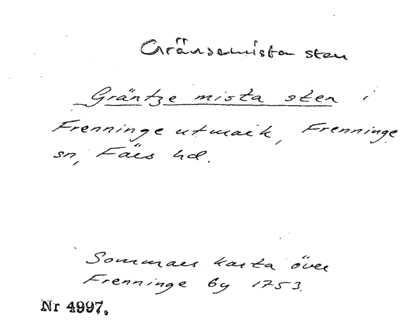 Gränsemista sten
Gräntze mista sten i
Frenninge utmark, Frenninge
sn, Färs hd.
Sommars karta över
Frenninge by 1753.
Nr 4997.